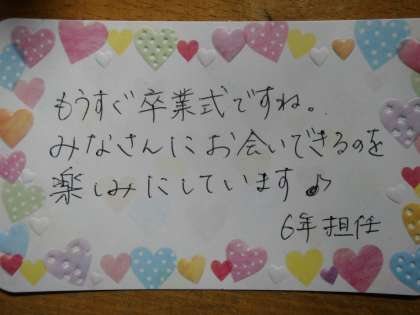 もうすぐ卒業式ですね。
みなさんにお会いできるのを
楽しみにしています♪
6年担任